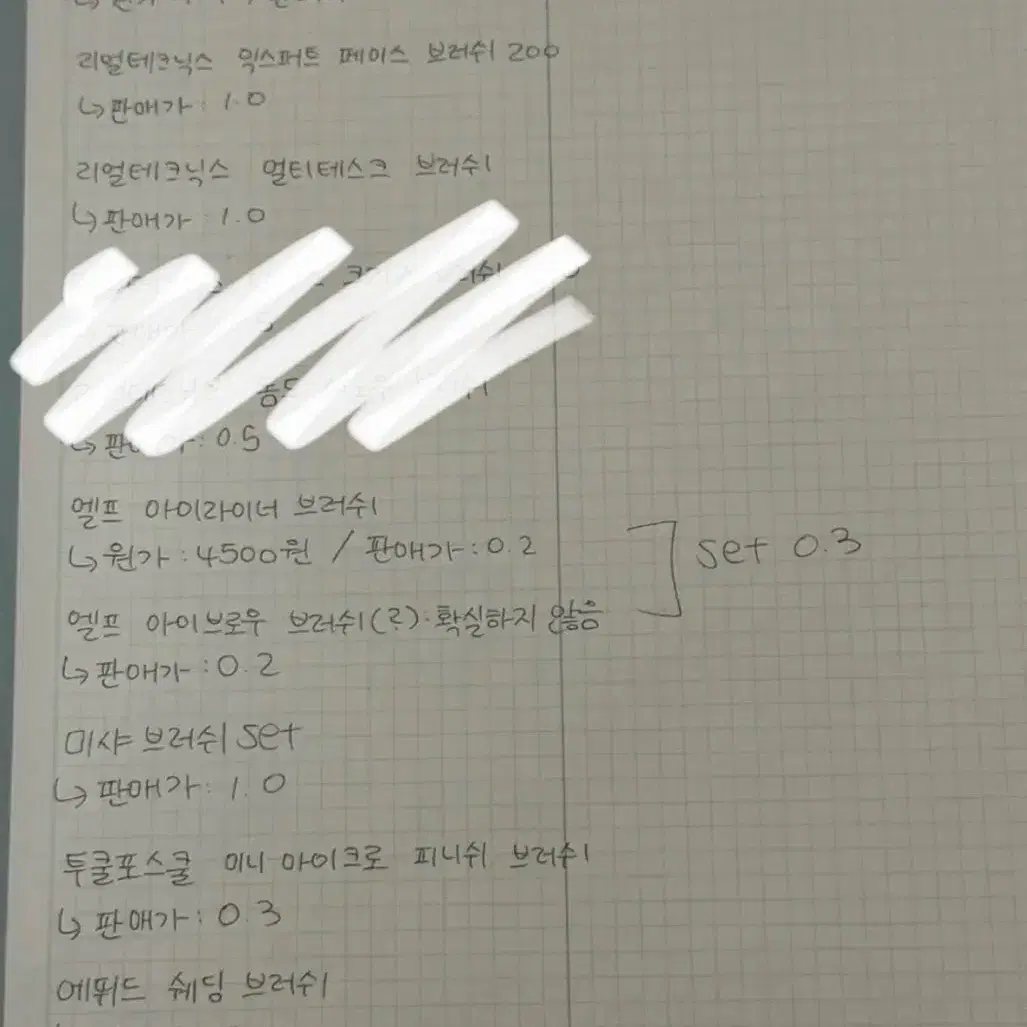 리얼테크닉스 익스퍼트 페이스 브러쉬 200
↳ 판매가 : 1.0
리얼테크닉스 멀티테스크 브러쉬
↳ 판매가 : 1.0
↳ : 0.5
엘프 아이라이너 브러쉬
↳ 원가 : 4500원 / 판매가 : 0.2
set 0.3
엘프 아이브로우 브러쉬(?)·확실하지 않음
↳ 판매가 : 0.2
미샤 브러쉬 set
↳ 판매가 : 1.0
투쿨포스쿨 미니 아이크로 피니쉬 브러쉬
↳ 판매가 : 0.3
에뛰드 쉐딩 브러쉬